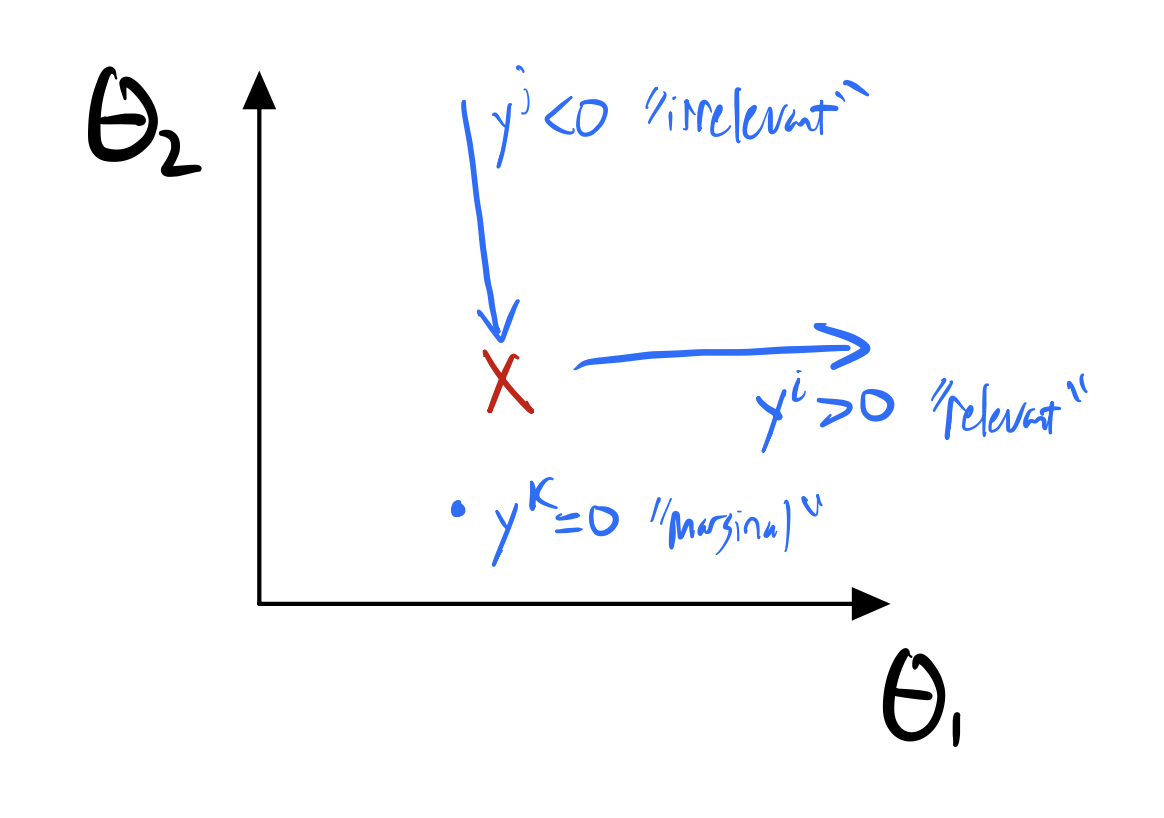 θ₂
yʲ<0 "irrelevant"
yⁱ>0 "relevant"
• yᴷ=0 "marginal"
θ₁